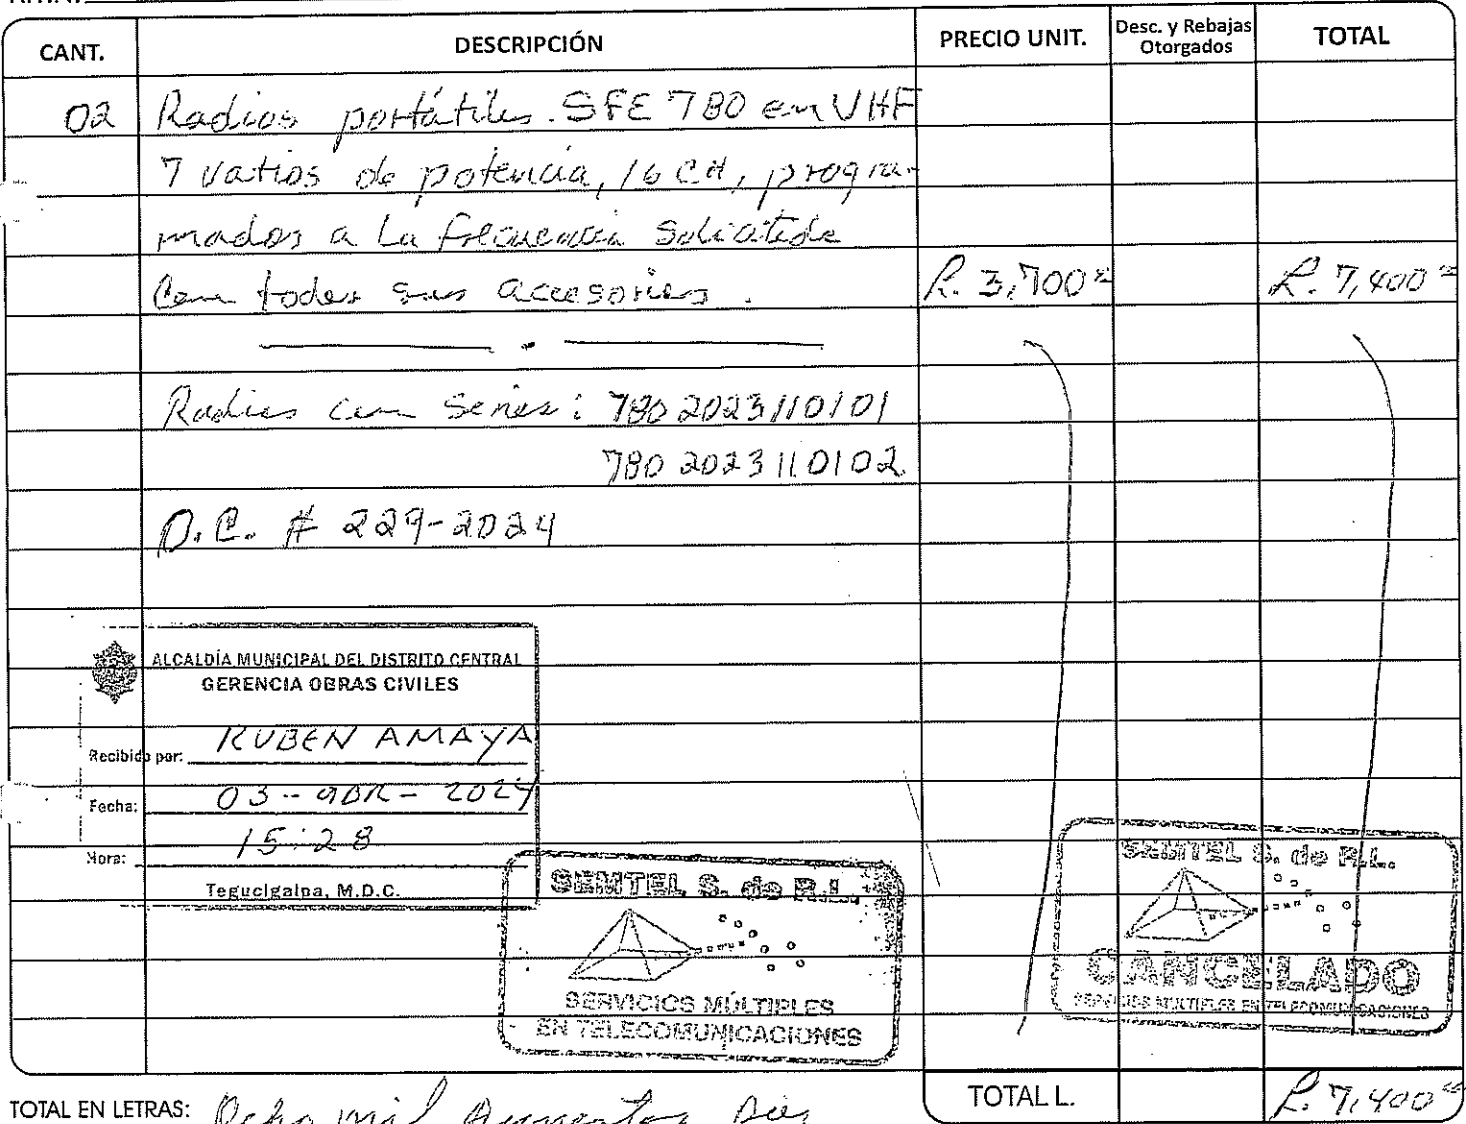 CANT. DESCRIPCIÓN PRECIO UNIT. Desc. y Rebajas Otorgados TOTAL
02 Radios portátiles. SFE 780 en VHF
7 vatios de potencia, 16 CH, progra-
mados a la frecuencia Solicitada
Con todos sus accesorios. L. 3,700 L. 7,400
Radios con series: 780 2023110101
780 2023110102
O.C. # 229-2024
ALCALDÍA MUNICIPAL DEL DISTRITO CENTRAL
GERENCIA OBRAS CIVILES
Recibido por: RUBEN AMAYA
Fecha: 03-ABR-2024
Hora: 15:28
Tegucigalpa, M.D.C.
SEMTEL S. de R.L.
SERVICIOS MÚLTIPLES
EN TELECOMUNICACIONES
SEMTEL S. de R.L.
CANCELADO
SERVICIOS MULTIPLES EN TELECOMUNICACIONES
TOTAL L. L. 7,400
TOTAL EN LETRAS: Ocho mil